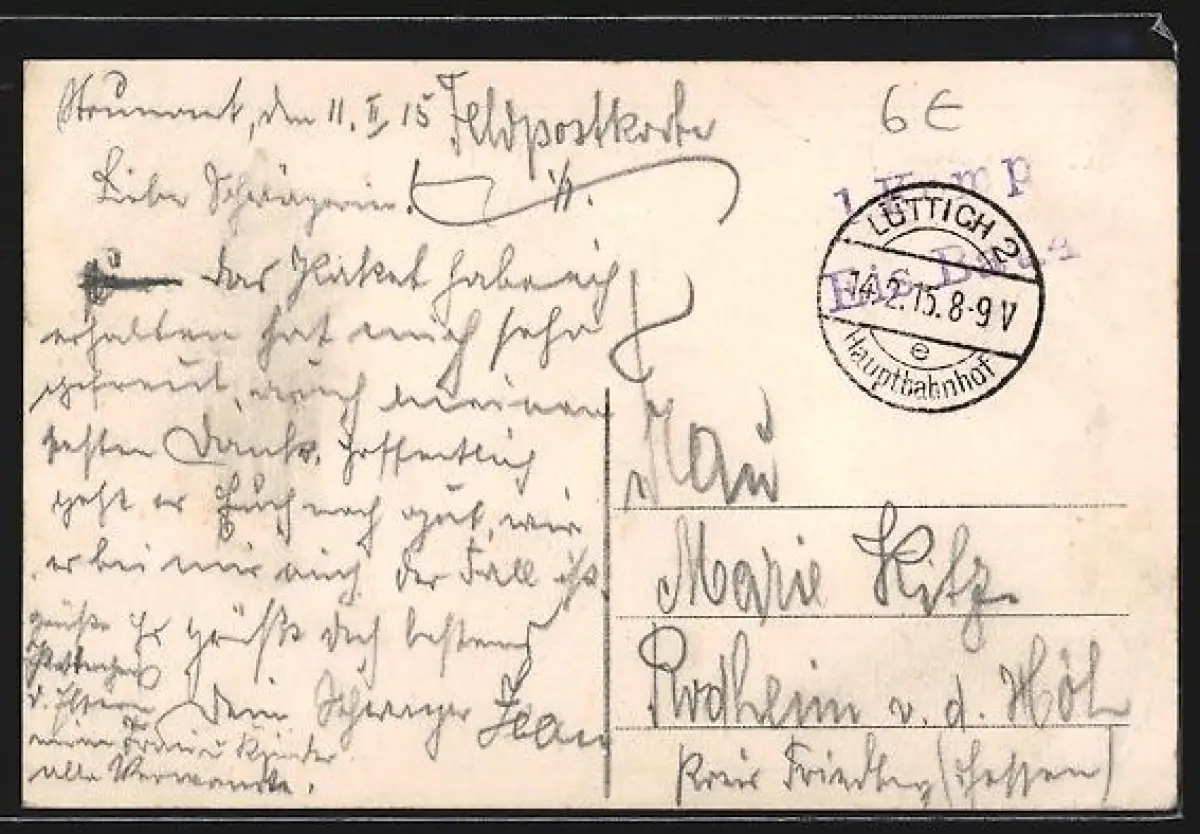 Stoumont, den 11. II. 15 Feldpostkarte
Liebe Schwägerin!
das Paket habe ich
erhalten hat mich sehr
gefreut, auch meinen
besten Dank. Hoffentlich
geht es Euch noch gut, wie
es bei mir auch der Fall ist.
grüßt dich bestens
Dein Schwager
grüße
d. Eltern
meine Frau u Kinder
alle Verwandte.
6 E
1. Komp
Eis. Bau 4
LÜTTICH 2
14.2.15. 8-9 V
e
Hauptbahnhof
Frau
Marie Kitz
Rodheim v. d. Höh
Kreis Friedberg (Hessen)